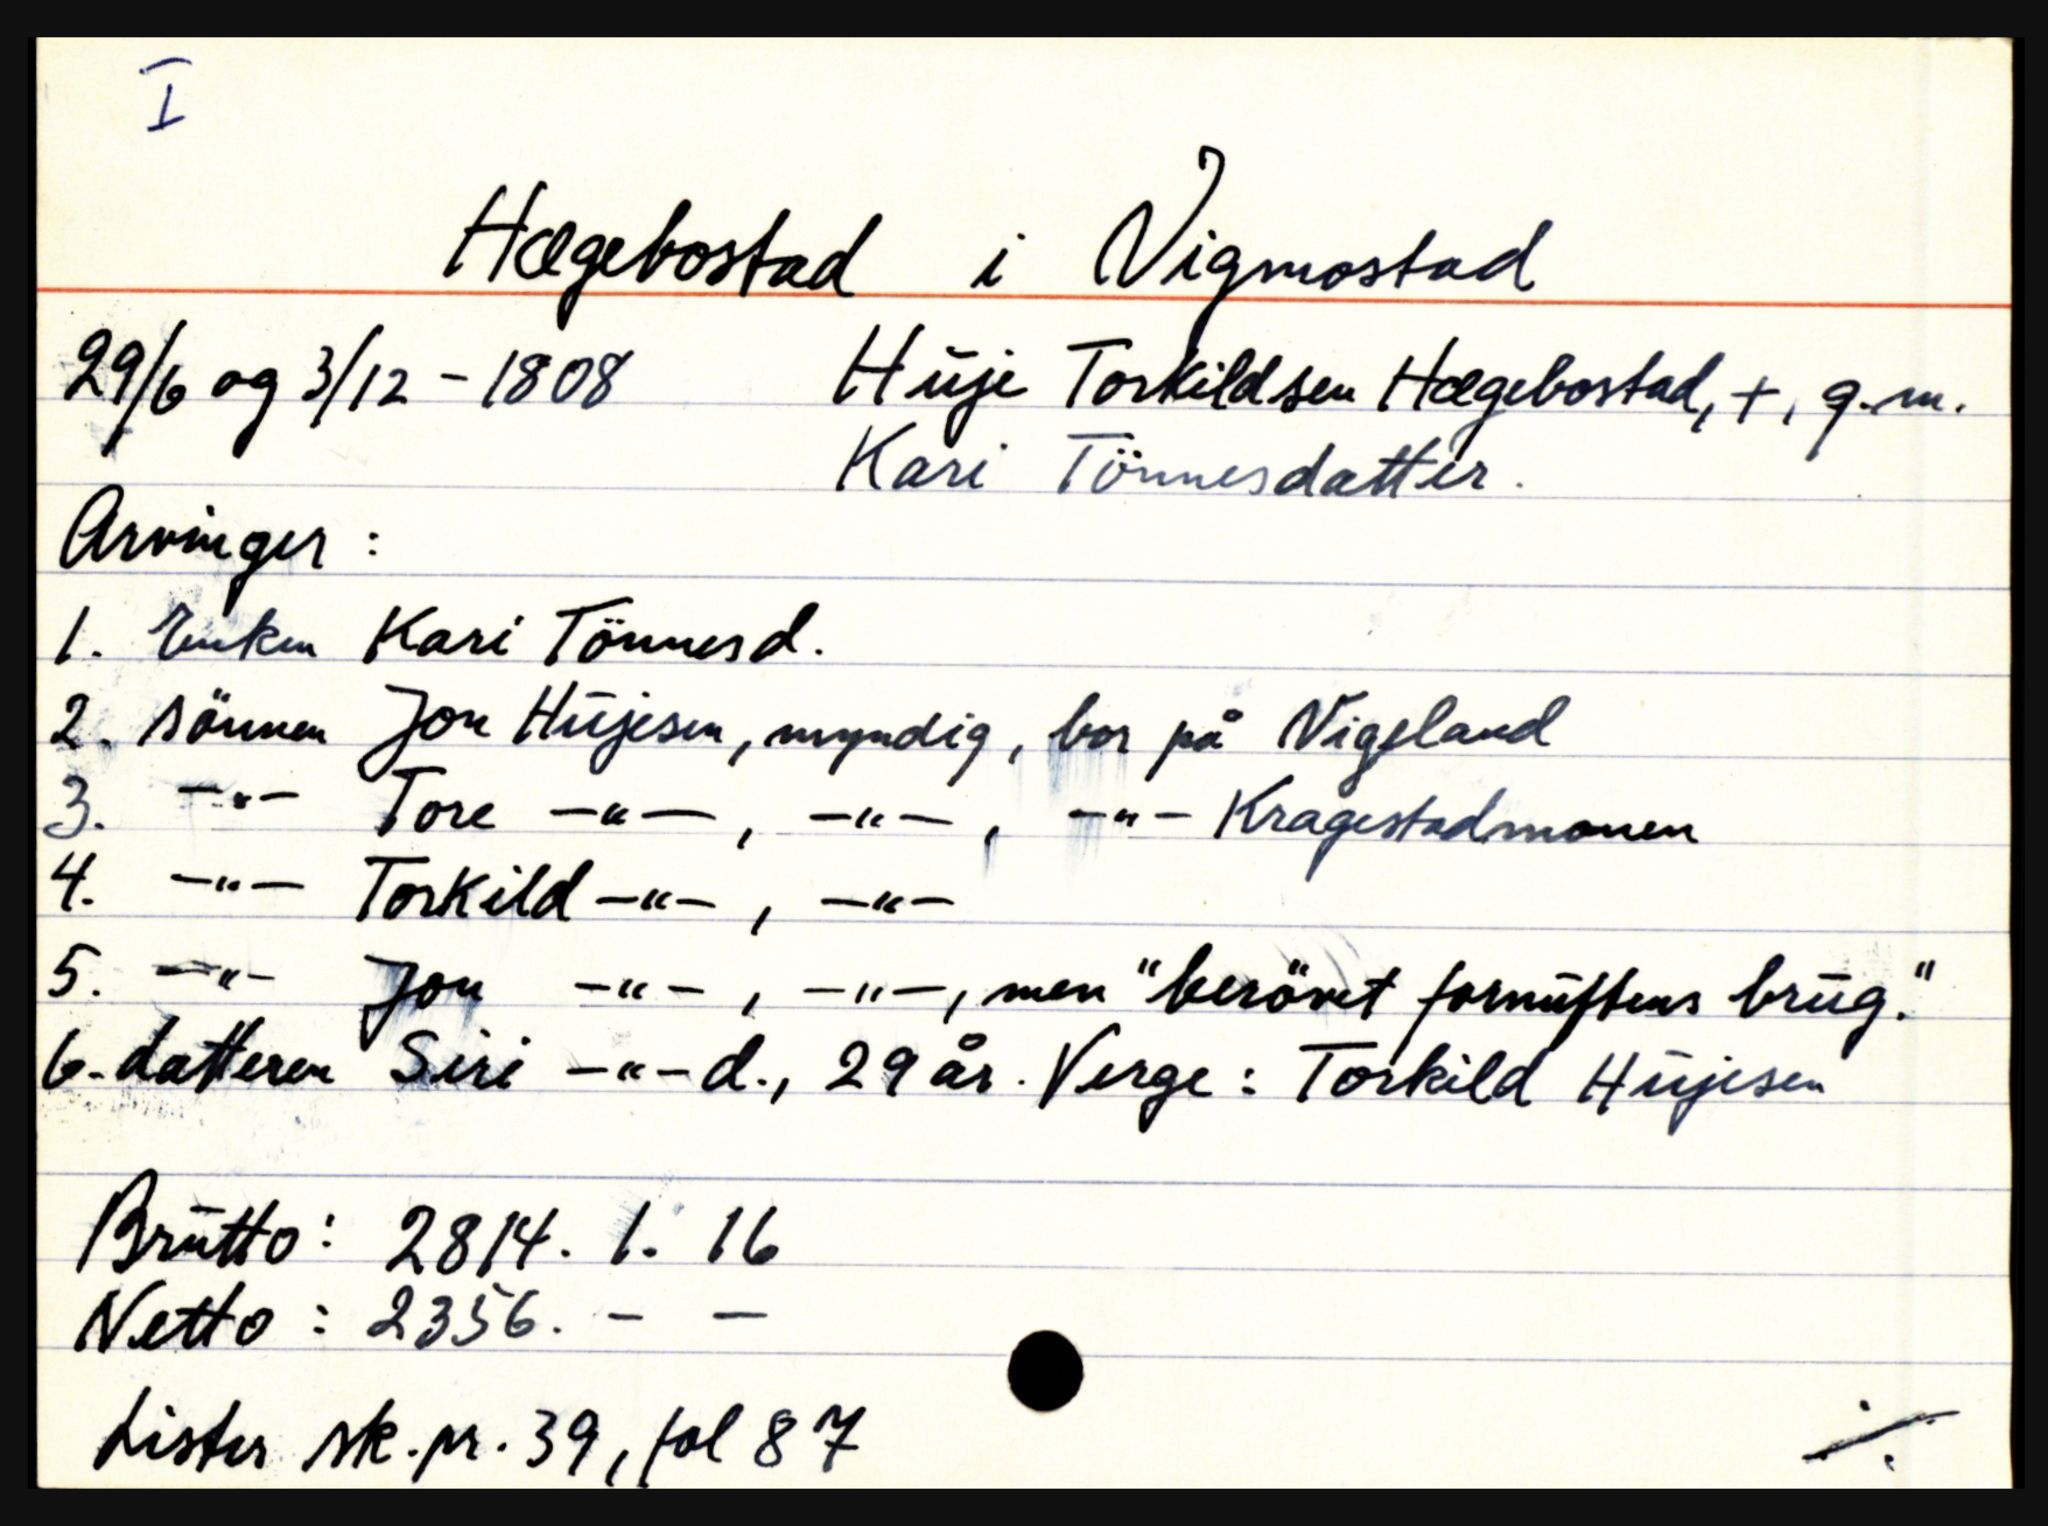 I
Hægebostad i Vigmostad
29/6 og 3/12 - 1808 Huje Torkildsen Hægebostad, +, g.m.
Kari Tönnesdatter.
Arvinger :
1. Enken Kari Tönnesd.
2. sönnen Jon Hujesen, myndig, bor på Vigeland
3. -"- Tore -"-, -"-, -"- Kragestadmonen
4. -"- Torkild -"-, -"-
5. -"- Jon -"-, -"-, men "berövet fornuftens brug."
6. datteren Siri -"-d., 29 år. Verge : Torkild Hujesen
Brutto : 2814. 1. 16
Netto : 2356. - -
Lister sk.pr. 39, fol 87
./.